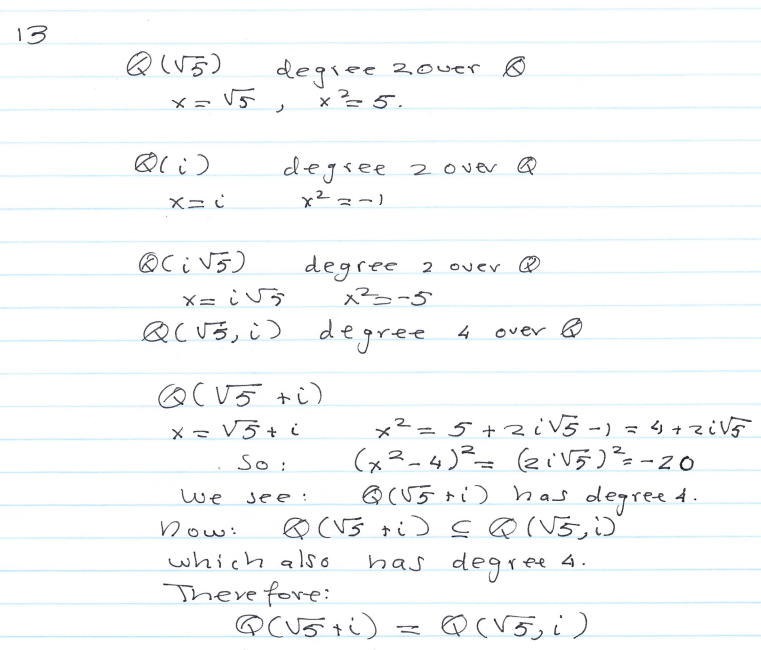 13
ℚ(√5) degree 2 over ℚ
x = √5 , x² = 5.
ℚ(i) degree 2 over ℚ
x = i x² = -1
ℚ(i√5) degree 2 over ℚ
x = i√5 x² = -5
ℚ(√5, i) degree 4 over ℚ
ℚ(√5 + i)
x = √5 + i x² = 5 + 2i√5 - 1 = 4 + 2i√5
So: (x² - 4)² = (2i√5)² = -20
We see: ℚ(√5 + i) has degree 4.
Now: ℚ(√5 + i) ⊆ ℚ(√5, i)
which also has degree 4.
Therefore:
ℚ(√5 + i) = ℚ(√5, i)